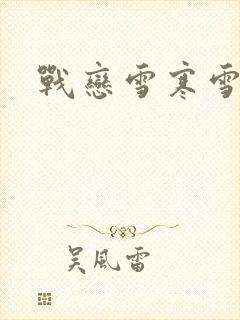 戰戀雪寒雪
吴風雷